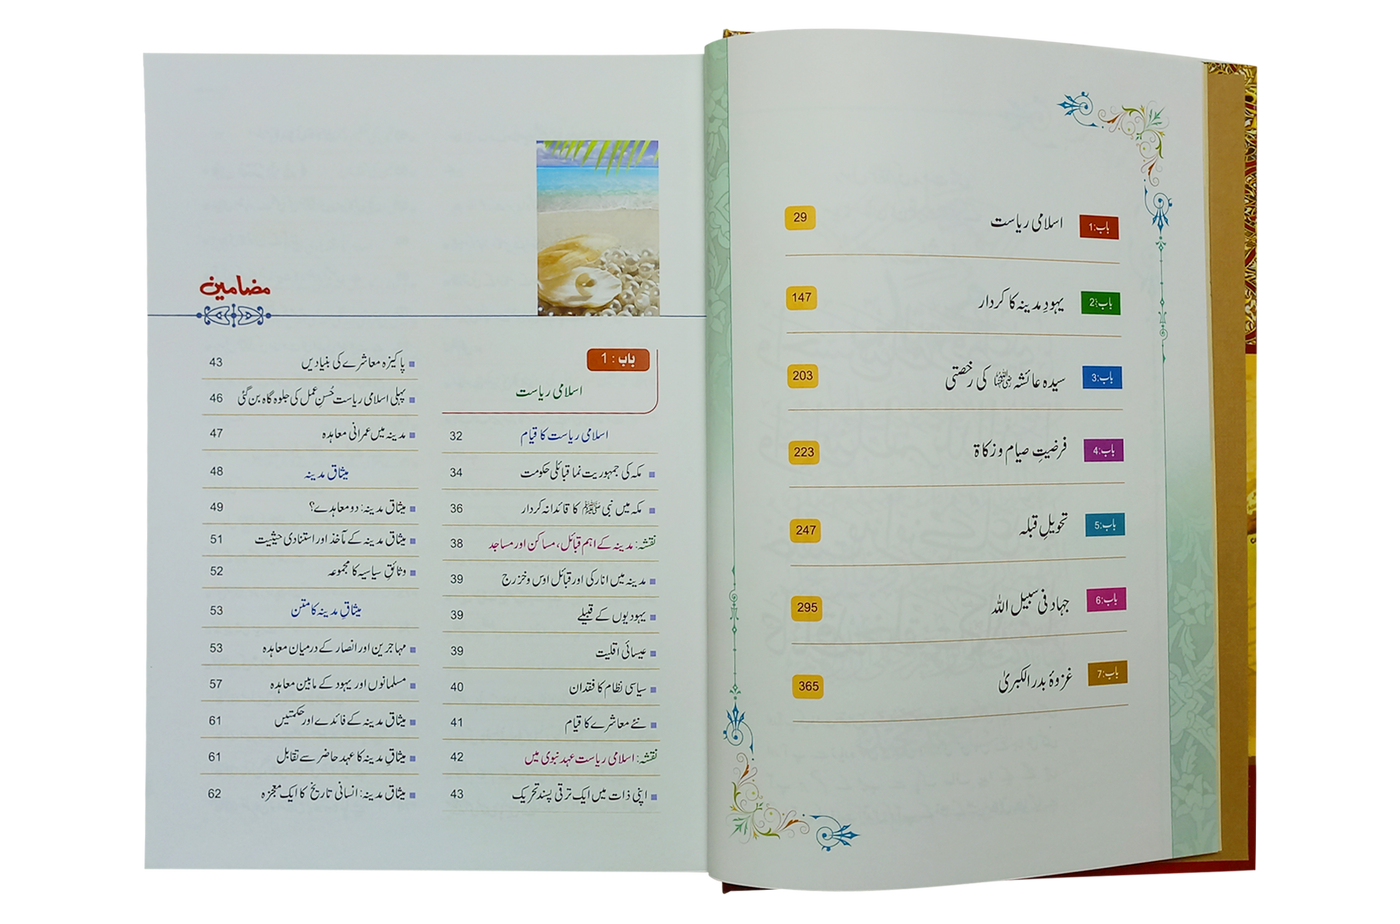 باب:1 اسلامی ریاست 29
باب:2 یہودِ مدینہ کا کردار 147
باب:3 سیدہ عائشہ رضی اللہ عنہا کی رخصتی 203
باب:4 فرضیتِ صیام و زکاۃ 223
باب:5 تحویلِ قبلہ 247
باب:6 جہاد فی سبیل اللہ 295
باب:7 غزوۂ بدر الکبریٰ 365
مضامین
باب : 1
اسلامی ریاست
اسلامی ریاست کا قیام 32
مکہ کی جمہوریت نما قبائلی حکومت 34
مکہ میں نبی ﷺ کا قائدانہ کردار 36
نقشہ: مدینہ کے اہم قبائل، مساکن اور مساجد 38
مدینہ میں انارکی اور قبائل اوس و خزرج 39
یہودیوں کے قبیلے 39
عیسائی اقلیت 39
سیاسی نظام کا فقدان 40
نئے معاشرے کا قیام 41
نقشہ: اسلامی ریاست عہد نبوی میں 42
اپنی ذات میں ایک ترقی پسند تحریک 43
پاکیزہ معاشرے کی بنیادیں 43
پہلی اسلامی ریاست حُسنِ عمل کی جلوہ گاہ بن گئی 46
مدینہ میں عمرانی معاہدہ 47
میثاقِ مدینہ 48
میثاقِ مدینہ: دو معاہدے؟ 49
میثاقِ مدینہ کے مآخذ اور استنادی حیثیت 51
وثائقِ سیاسیہ کا مجموعہ 52
میثاقِ مدینہ کا متن 53
مہاجرین اور انصار کے درمیان معاہدہ 53
مسلمانوں اور یہود کے مابین معاہدہ 57
میثاقِ مدینہ کے فائدے اور حکمتیں 61
میثاقِ مدینہ کا عہد حاضر سے تقابل 61
میثاقِ مدینہ: انسانی تاریخ کا ایک معجزہ 62